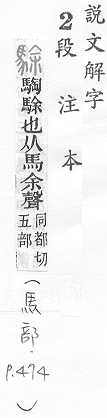 說文解字
2段注本
駼 騊駼也从馬余聲
同都切
五部
(馬部.
p.474)